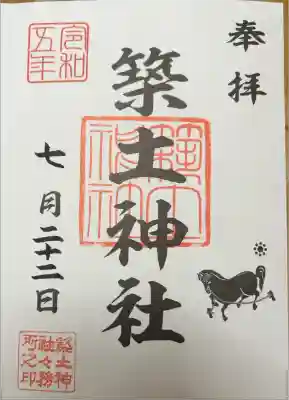 奉拝
築土神社
令和
五年
七月二十二日
築土神
社々務
所之印